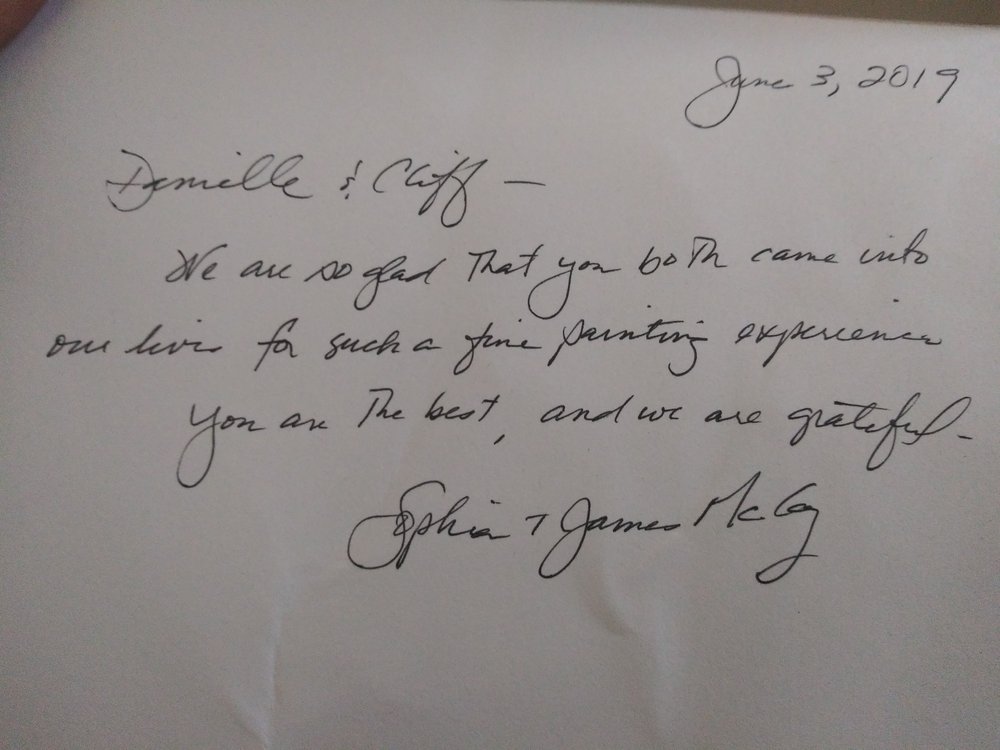 June 3, 2019
Danielle & Cliff —
We are so glad that you both came into
our lives for such a fine painting experience
You are the best, and we are grateful -
Sophia + James McCoy